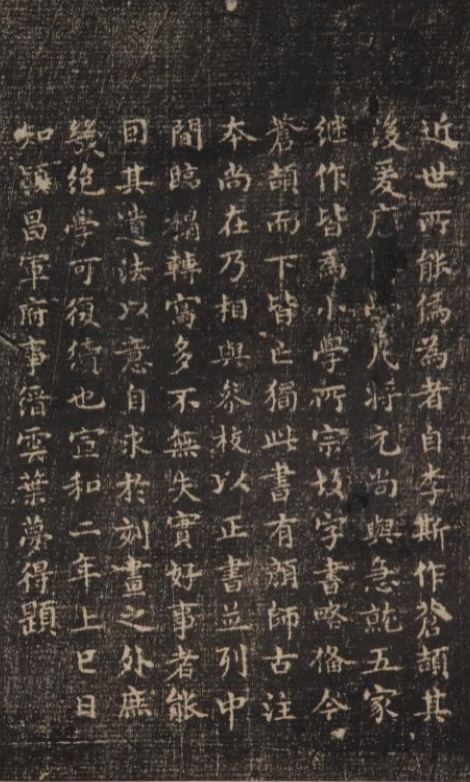 近世所能僞為者自李斯作蒼頡其
後爰凡將元尚與急就五家
継作皆爲小學所宗故字書略俻今
蒼頡而下皆亡獨此書有顏師古注
夲尚在乃相與參校以正書並列中
間臨搨轉寫多不無失實好事者能
囙其遺法以意自求於刻畫之外庶
幾絶學可復續也宣和二年上巳日
知潁昌軍府事縉雲葉夢得題